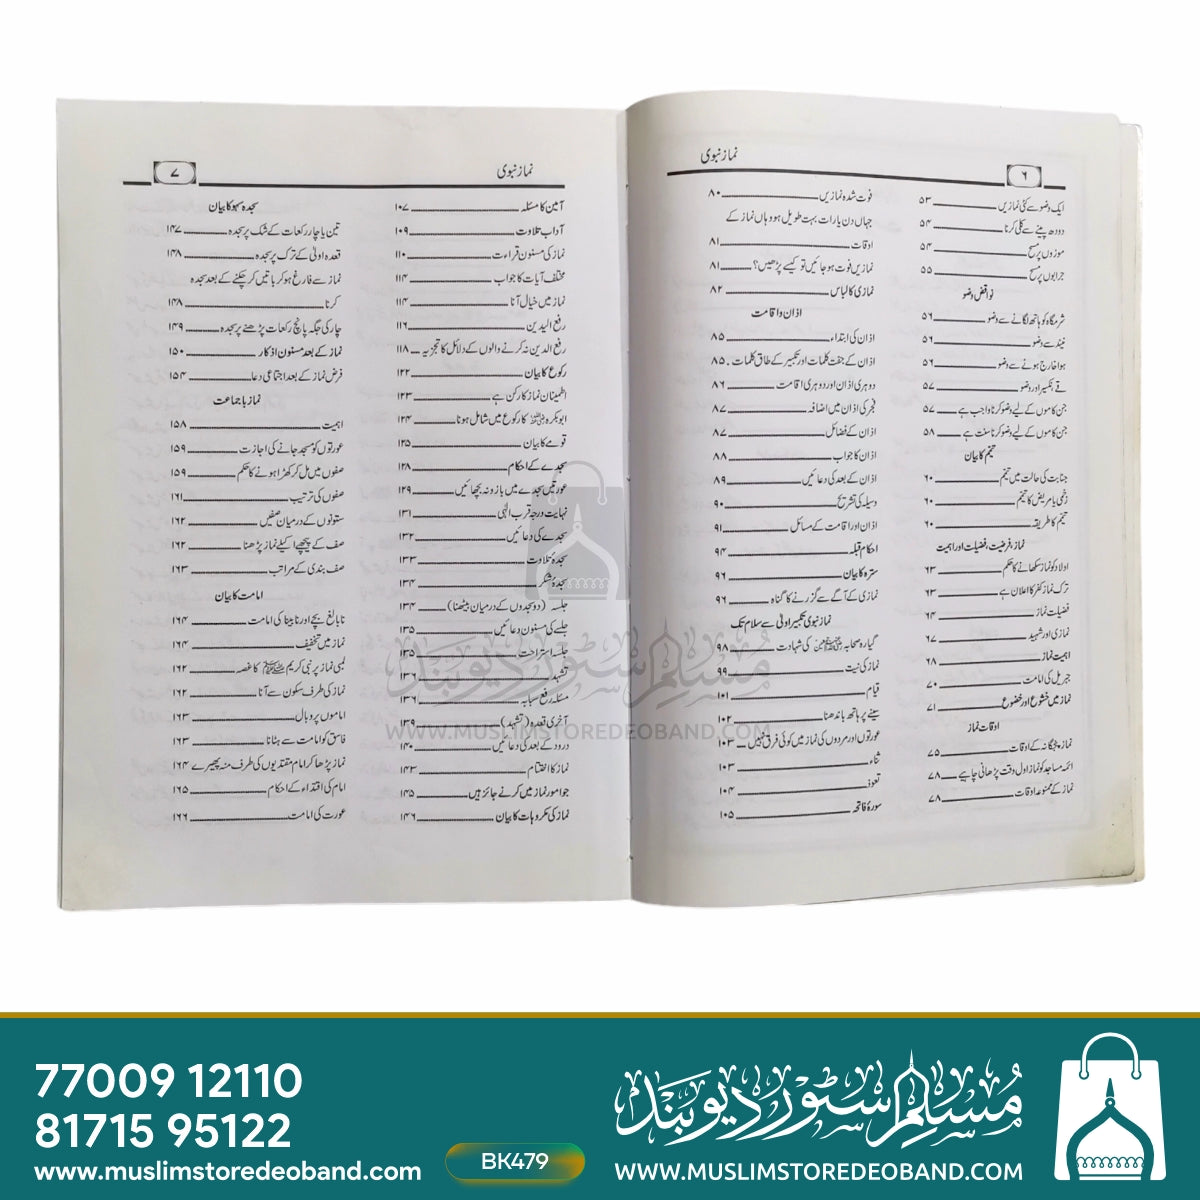 نماز نبوی
۶
ایک وضو سے کئی نمازیں ۵۳
دودھ پینے سے کلی کرنا ۵۴
موزوں پر مسح ۵۴
جرابوں پر مسح ۵۵
نواقض وضو
شرمگاہ کو ہاتھ لگانے سے وضو ۵۶
نیند سے وضو ۵۶
ہوا خارج ہونے سے وضو ۵۶
قے، نکسیر اور وضو ۵۷
جن کاموں کے لیے وضو کرنا واجب ہے ۵۷
جن کاموں کے لیے وضو کرنا سنت ہے ۵۸
تیمم کا بیان
جنابت کی حالت میں تیمم ۶۰
زخمی یا مریض کا تیمم ۶۰
تیمم کا طریقہ ۶۰
نماز، فرضیت، فضیلت اور اہمیت
اولاد کو نماز سکھانے کا حکم ۶۳
ترک نماز کفر کا اعلان ہے ۶۳
فضیلت نماز ۶۴
نمازی اور شہید ۶۷
اہمیت نماز ۶۸
جبریل کی امامت ۷۰
نماز میں خشوع اور خضوع ۷۱
اوقات نماز
نماز پنجگانہ کے اوقات ۷۵
ائمہ مساجد کو نماز اول وقت پڑھانی چاہیے ۷۸
نماز کے ممنوعہ اوقات ۷۸
فوت شدہ نمازیں ۸۰
جہاں دن یا رات بہت طویل ہو وہاں نماز کے
اوقات ۸۱
نمازیں فوت ہو جائیں تو کیسے پڑھیں؟ ۸۱
نمازی کا لباس ۸۲
اذان و اقامت
اذان کی ابتداء ۸۵
اذان کے جفت کلمات اور تکبیر کے طاق کلمات ۸۵
دوہری اذان اور دوہری اقامت ۸۶
فجر کی اذان میں اضافہ ۸۷
اذان کے فضائل ۸۷
اذان کا جواب ۸۸
اذان کے بعد کی دعائیں ۸۹
وسیلہ کی تشریح ۹۰
اذان اور اقامت کے مسائل ۹۱
احکام قبلہ ۹۴
سترہ کا بیان ۹۶
نمازی کے آگے سے گزرنے کا گناہ ۹۶
نماز نبوی تکبیر اولیٰ سے سلام تک
گیارہ صحابہ کی شہادت ۹۸
نماز کی نیت ۹۹
قیام ۱۰۱
سینے پر ہاتھ باندھنا ۱۰۲
عورتوں اور مردوں کی نماز میں کوئی فرق نہیں ۱۰۳
ثناء ۱۰۳
تعوذ ۱۰۴
سورۂ فاتحہ ۱۰۵
نماز نبوی
۷
آمین کا مسئلہ ۱۰۷
آداب تلاوت ۱۰۹
نماز کی مسنون قراءت ۱۱۰
مختلف آیات کا جواب ۱۱۴
نماز میں خیال آنا ۱۱۴
رفع الیدین ۱۱۶
رفع الدین نہ کرنے والوں کے دلائل کا تجزیہ ۱۱۸
رکوع کا بیان ۱۲۲
اطمینان نماز کا رکن ہے ۱۲۳
ابوبکرہ کا رکوع میں شامل ہونا ۱۲۴
قومے کا بیان ۱۲۵
سجدے کے احکام ۱۲۸
عورتیں سجدے میں بازو نہ بچھائیں ۱۲۹
نہایت درجہ قرب الٰہی ۱۳۱
سجدے کی دعائیں ۱۳۲
سجدۂ تلاوت ۱۳۳
سجدۂ شکر ۱۳۴
جلسہ (دو سجدوں کے درمیان بیٹھنا) ۱۳۴
جلسے کی مسنون دعائیں ۱۳۵
جلسہ استراحت ۱۳۵
تشہد ۱۳۶
مسئلہ رفع سبابہ ۱۳۶
آخری قعدہ (تشہد) ۱۳۹
درود کے بعد کی دعائیں ۱۴۰
نماز کا اختتام ۱۴۳
جو امور نماز میں کرنے جائز ہیں ۱۴۵
نماز کی مکروہات کا بیان ۱۴۶
سجدہ سہو کا بیان
تین یا چار رکعات کے شک پر سجدہ ۱۴۷
قعدہ اولیٰ کے ترک پر سجدہ ۱۴۸
نماز سے فارغ ہو کر باتیں کر چکنے کے بعد سجدہ
کرنا ۱۴۸
چار کی جگہ پانچ رکعات پڑھنے پر سجدہ ۱۴۹
نماز کے بعد مسنون اذکار ۱۵۰
فرض نماز کے بعد اجتماعی دعا ۱۵۴
نماز با جماعت
اہمیت ۱۵۸
عورتوں کو مسجد جانے کی اجازت ۱۵۹
صفوں میں مل کر کھڑا ہونے کا حکم ۱۵۹
صفوں کی ترتیب ۱۶۱
ستونوں کے درمیان صفیں ۱۶۲
صف کے پیچھے اکیلے نماز پڑھنا ۱۶۲
صف بندی کے مراتب ۱۶۳
امامت کا بیان
نابالغ بچے اور نابینا کی امامت ۱۶۴
نماز میں تخفیف ۱۶۴
لمبی نماز پر نبی کریم ﷺ کا غصہ ۱۶۲
نماز کی طرف سکون سے آنا ۱۶۲
اماموں پر وبال ۱۶۳
فاسق کو امامت سے ہٹانا ۱۶۳
نماز پڑھا کر امام مقتدیوں کی طرف منہ پھیرے ۱۶۴
امام کی اقتداء کے احکام ۱۶۵
عورت کی امامت ۱۶۶
مسلم سٹور دیوبند
WWW.MUSLIMSTOREDEOBAND.COM
77009 12110
81715 95122
www.muslimstoredeoband.com
BK479
مسلم سٹور دیوبند
WWW.MUSLIMSTOREDEOBAND.COM